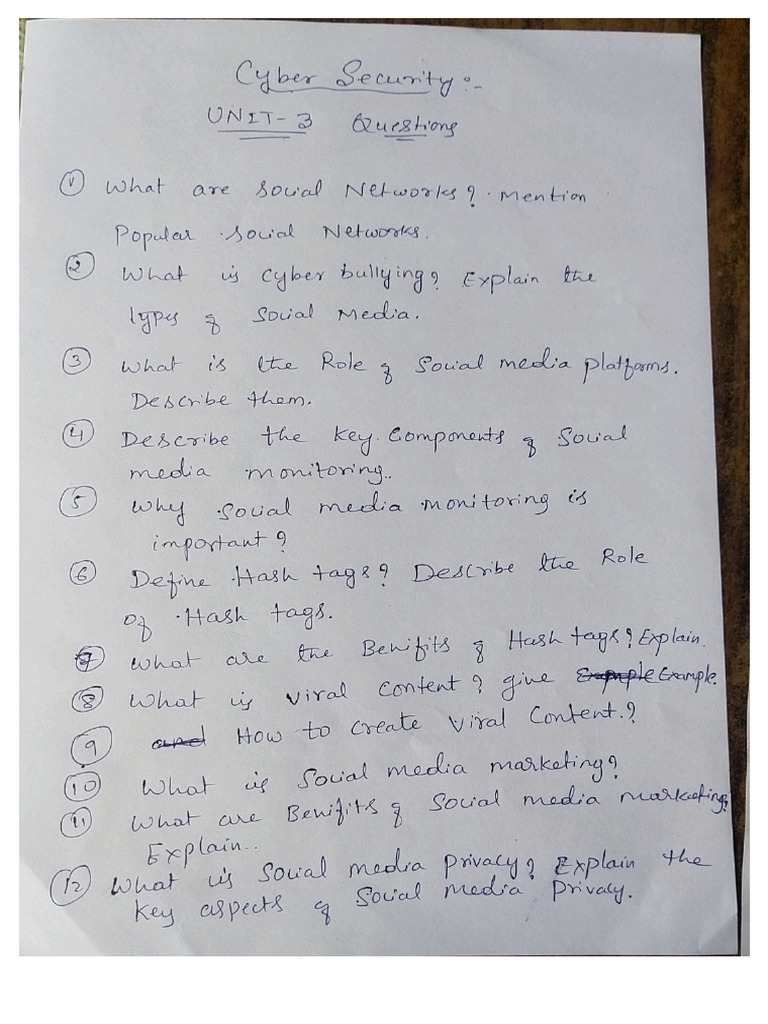 Cyber Security:-
UNIT-3 Questions
① What are Social Networks? Mention
Popular Social Networks.
② What is Cyber bullying? Explain the
types of Social Media.
③ What is the Role of Social media platforms.
Describe them.
④ Describe the key Components of Social
media monitoring..
⑤ Why Social media monitoring is
important?
⑥ Define Hash tags? Describe the Role
of Hash tags.
⑦ What are the Benifits of Hash tags? Explain.
⑧ What is Viral Content? give Example Example.
⑨ and How to Create Viral Content.?
⑩ What is Social media marketing?
⑪ What are Benifits of Social media marketing?
Explain..
⑫ What is Social media privacy? Explain the
key aspects of Social media Privacy.